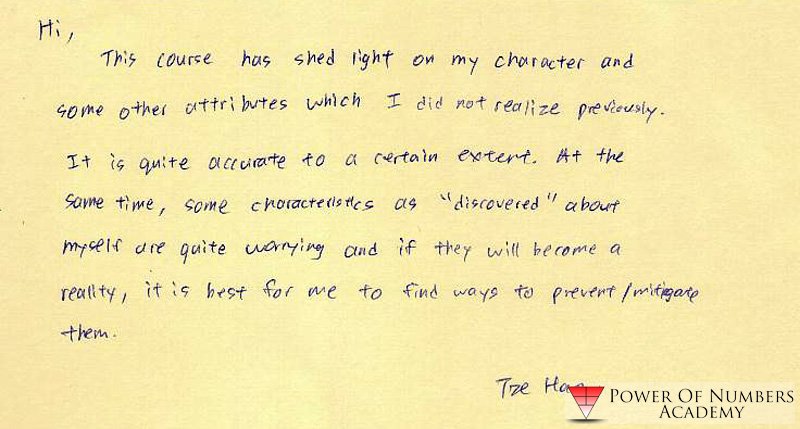 Hi,
This course has shed light on my character and
some other attributes which I did not realize previously.
It is quite accurate to a certain extent. At the
same time, some characteristics as "discovered" about
myself are quite worrying and if they will become a
reality, it is best for me to find ways to prevent/mitigate
them.
Tze
POWER OF NUMBERS
ACADEMY